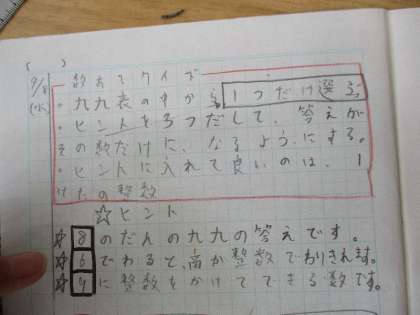 9/8
(水)
数あてクイズ
・九九表の中から1つだけ選ぶ
・ヒントを3つだして、答えが
その数だけに、なるようにする。
・ヒントに入れて良いのは、1
けたの整数
☆ヒント
☆8のだんの九九の答えです。
☆6でわると、商が整数でわりきれます。
☆4に整数をかけてできる数です。